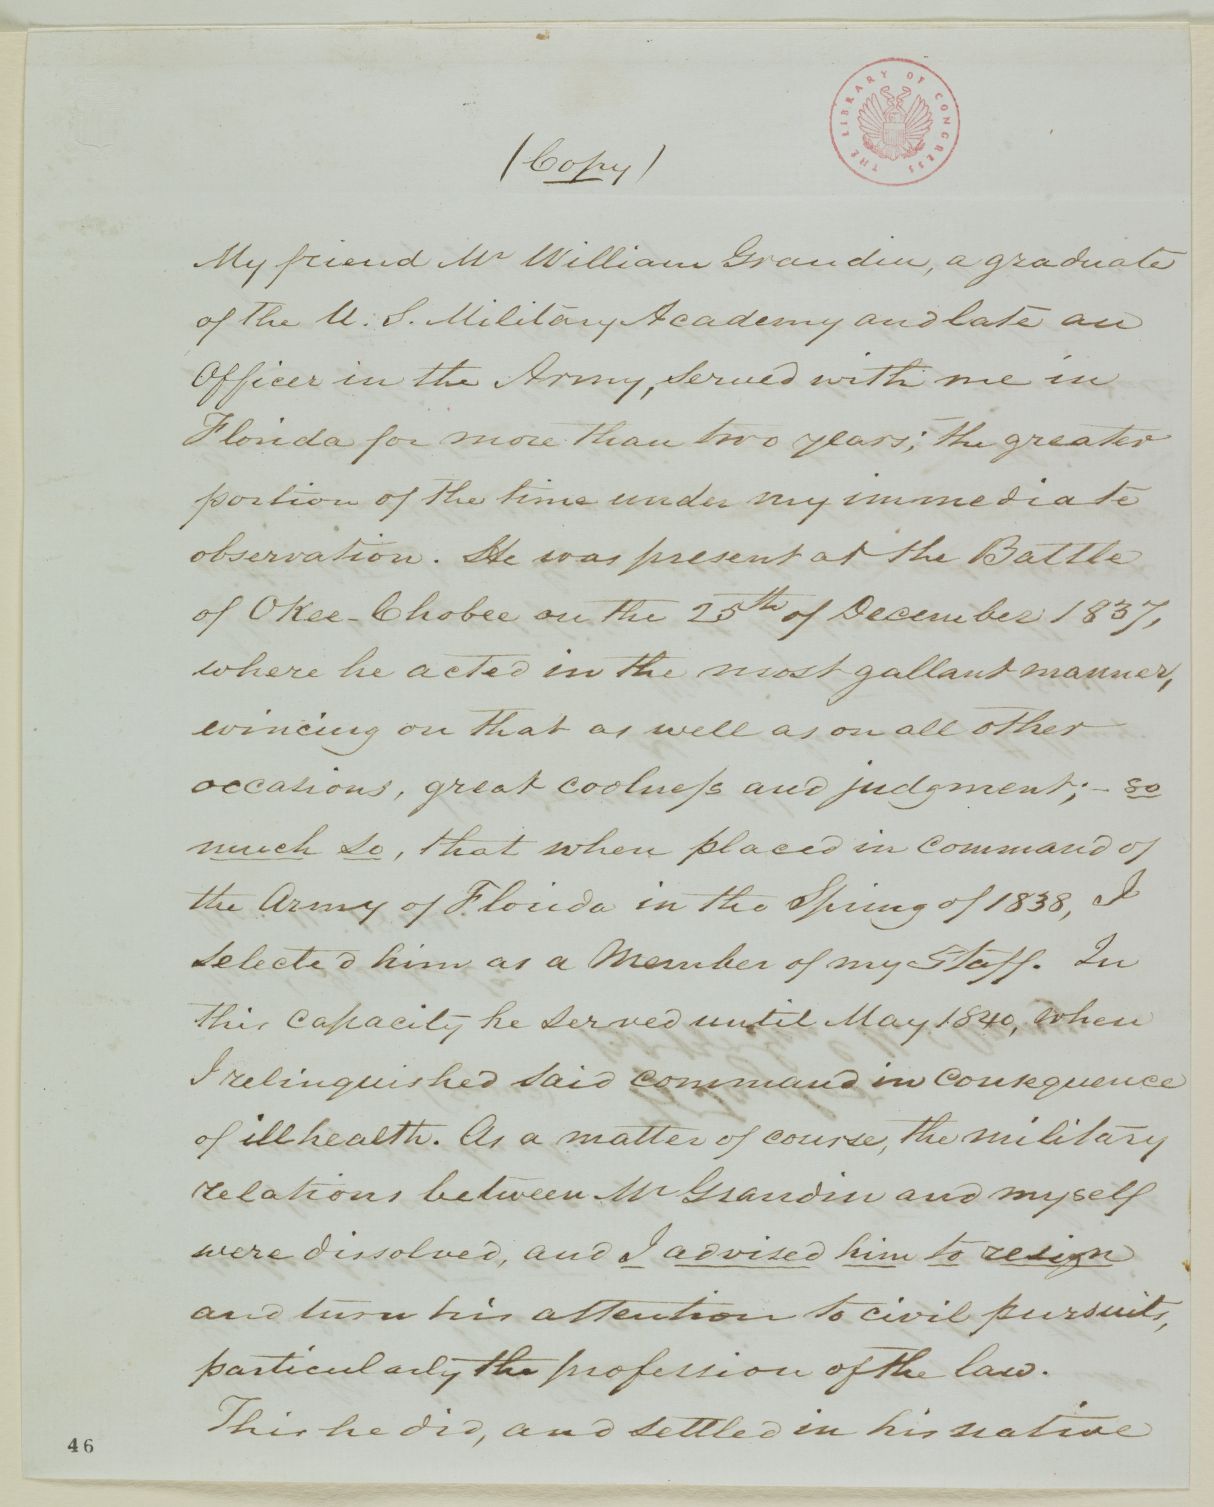 THE LIBRARY OF CONGRESS
(Copy)
My friend Mr William Grandin, a graduate
of the U. S. Military Academy and late an
Officer in the Army, served with me in
Florida for more than two years; the greater
portion of the time under my immediate
observation. He was present at the Battle
of OKee-Chobee on the 25th of December 1837,
where he acted in the most gallant manner,
evincing on that as well as on all other
occasions, great coolness and judgment; - so
much so, that when placed in command of
the Army of Florida in the Spring of 1838, I
selected him as a Member of my Staff. In
this capacity he served until May 1840, when
I relinquished said command in consequence
of ill health. As a matter of course, the military
relations between Mr Grandin and myself
were dissolved, and I advised him to resign
and turn his attention to civil pursuits,
particularly the profession of the law.
This he did, and settled in his native
46